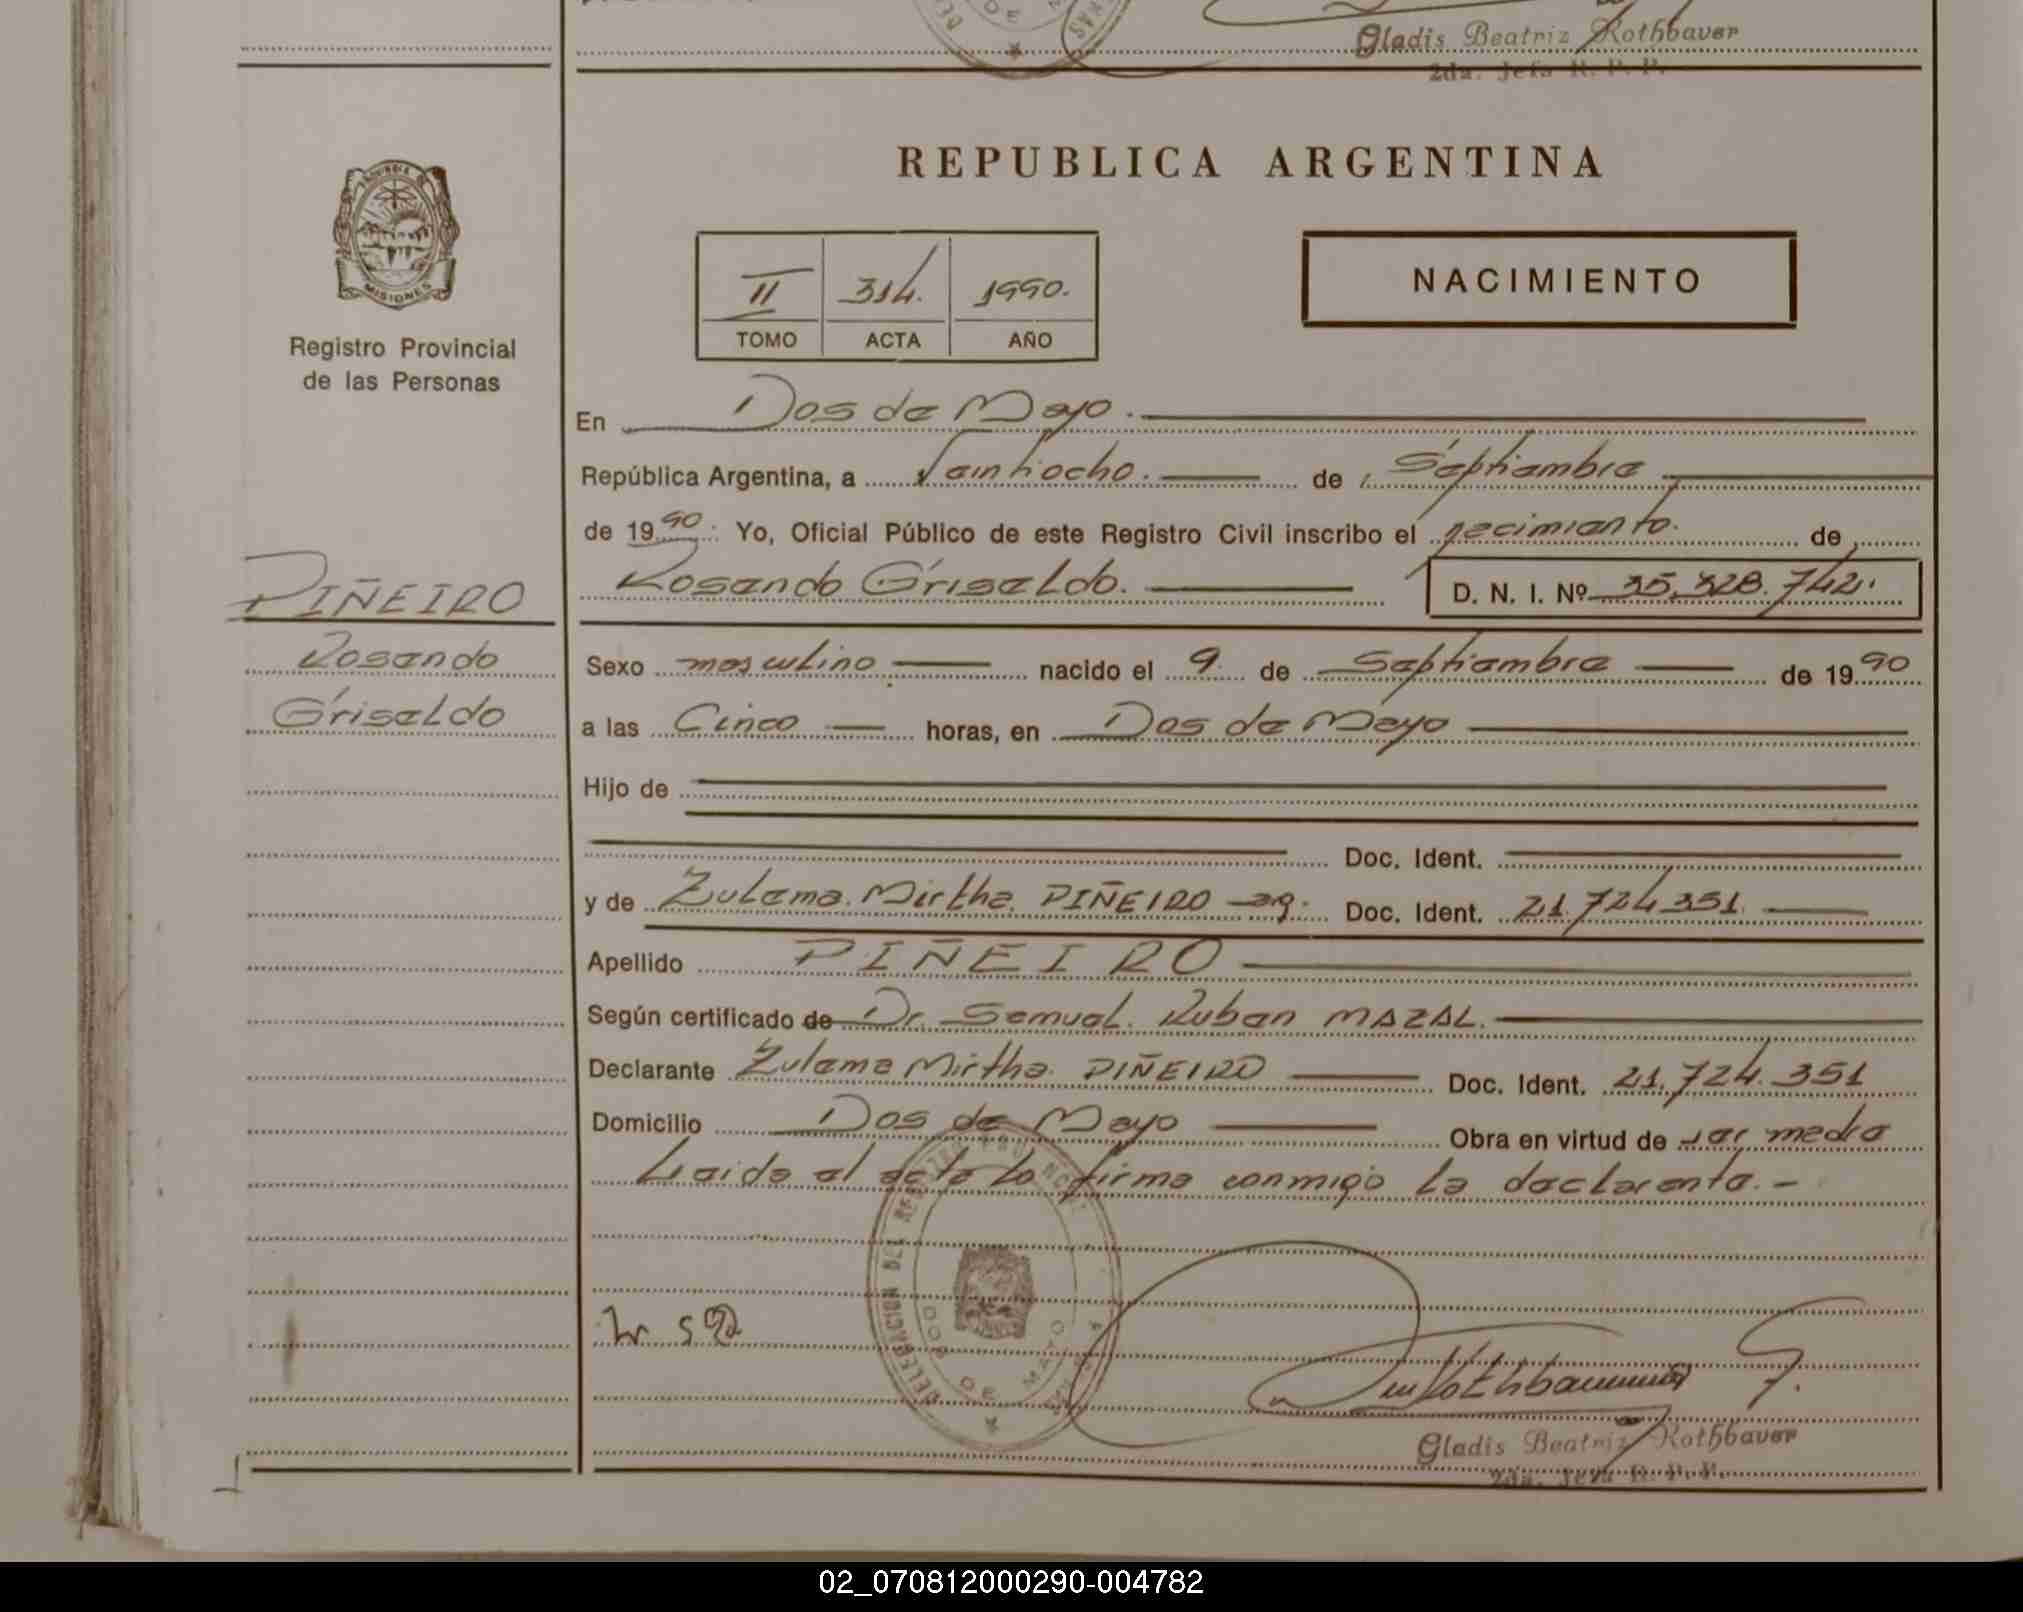 Gladis Beatriz Rothbaver
2da. Jefa R. P. P.
REPUBLICA ARGENTINA
PROVINCIA DE
MISIONES
Registro Provincial
de las Personas
II 314. 1990.
TOMO ACTA AÑO
NACIMIENTO
En Dos de Mayo.
República Argentina, a Veintiocho. de Septiembre
de 1990. Yo, Oficial Público de este Registro Civil inscribo el nacimiento. de
Rosendo Griseldo. D. N. I. Nº 35.328.742.
PIÑEIRO
Rosendo
Griseldo
Sexo masculino nacido el 9. de Septiembre de 1990
a las Cinco horas, en Dos de Mayo
Hijo de
Doc. Ident.
y de Zulema Mirtha PIÑEIRO arg. Doc. Ident. 21.724.351
Apellido PIÑEIRO
Según certificado de Dr. Samuel Ruben MAZAL.
Declarante Zulema Mirtha PIÑEIRO Doc. Ident. 21.724.351
Domicilio Dos de Mayo Obra en virtud de ser madre
Leida el acta la firma conmigo la declarante.-
DELEGACION DEL REGISTRO PROVINCIAL
DOS DE MAYO
Gladis Beatriz Rothbaver
2da. Jefa R. P. P.
02_070812000290-004782